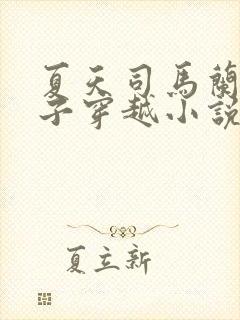 夏天司馬蘭
子穿越小說
夏立新